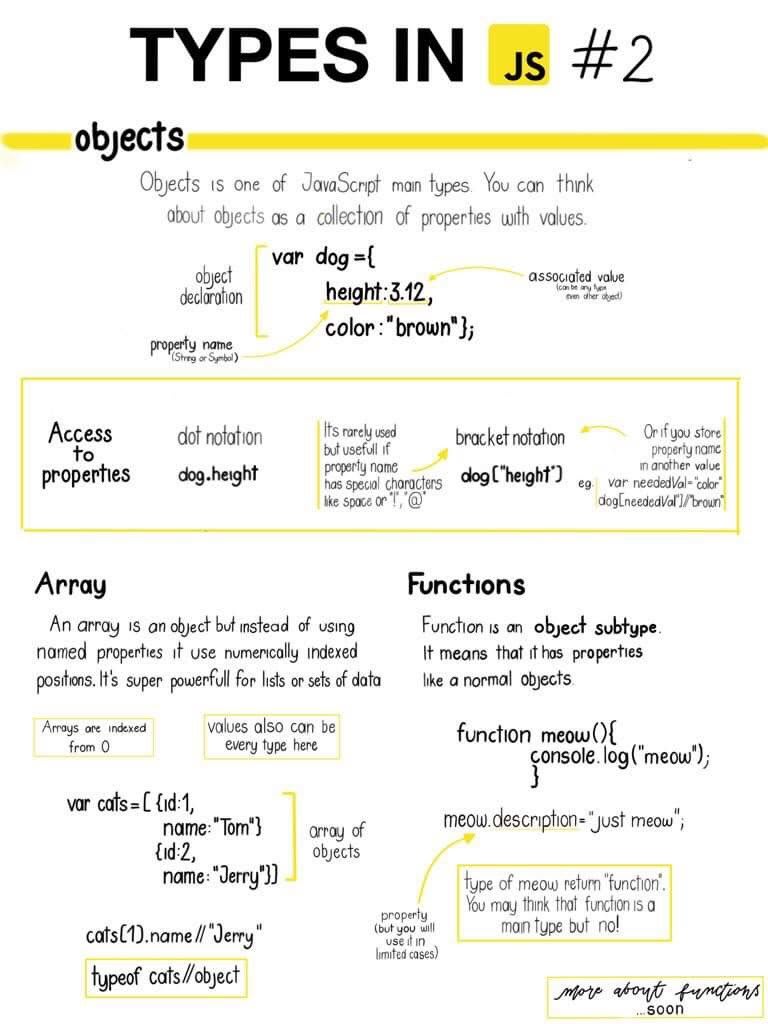 TYPES IN JS #2
objects
Objects is one of JavaScript main types. You can think
about objects as a collection of properties with values.
object
declaration
var dog={
height:3.12,
color:"brown"};
associated value
(can be any type
even other object)
property name
(String or Symbol)
Access
to
properties
dot notation
dog.height
It's rarely used
but usefull if
property name
has special characters
like space or "!", "@"
bracket notation
dog["height"]
Or if you store
property name
in another value
eg. var neededVal="color"
dog[neededVal]//"brown"
Array
An array is an object but instead of using
named properties it use numerically indexed
positions. It's super powerfull for lists or sets of data
Arrays are indexed
from 0
values also can be
every type here
var cats=[ {id:1,
name:"Tom"}
{id:2,
name:"Jerry"}]
array of
objects
cats[1].name//"Jerry"
typeof cats//object
Functions
Function is an object subtype.
It means that it has properties
like a normal objects
function meow(){
console.log("meow");
}
meow.description="just meow";
property
(but you will
use it in
limited cases)
type of meow return "function".
You may think that function is a
main type but no!
more about functions
...soon